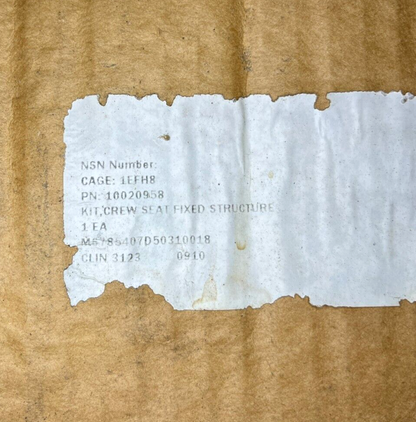 NSN Number:
CAGE: 1EFH8
PN: 10020958
KIT,CREW SEAT FIXED STRUCTURE
1 EA
M6785407D50310018
CLIN 3123 0910